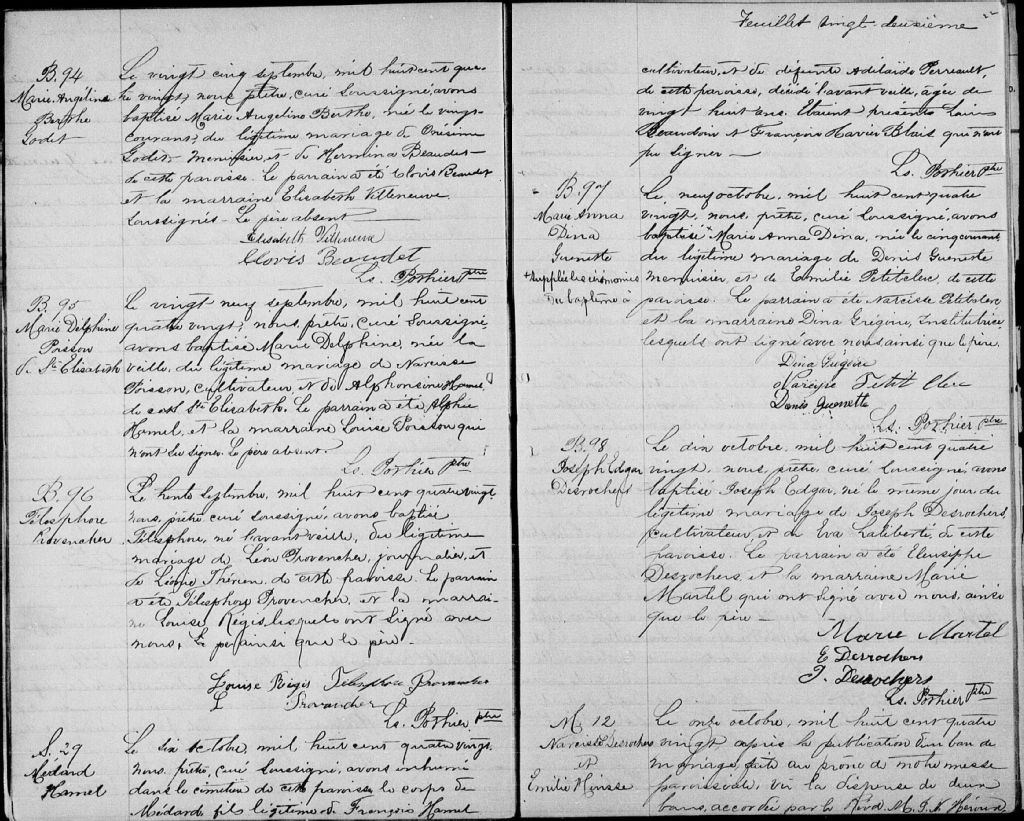 B. 94
Marie Angelina
Berthe
Godet
Le vingt cinq septembre, mil huit cent qua-
tre vingt, nous, prêtre, curé soussigné, avons
baptisé Marie Angelina Berthe, née le vingt
courant, du légitime mariage de Onésime
Godet, menuisier, et de Hermina Beaudet
de cette paroisse. Le parrain a été Clovis Beaudet
et la marraine Elizabeth Villeneuve
soussignés. Le père absent
Elisabeth Villeneuve
Clovis Beaudet
Ls. Pothier ptre
B. 95
Marie Delphine
Poisson
de Ste Elisabeth
Le vingt neuf septembre, mil huit cent
quatre vingt, nous, prêtre, curé soussigné,
avons baptisé Marie Delphine, née la
veille, du légitime mariage de Narcisse
Poisson, cultivateur et de Alphonsine Hamel
de Ste Elisabeth. Le parrain a été Alphée
Hamel, et la marraine Louise Poisson qui
n'ont su signer. Le père absent.
Ls. Pothier ptre
B. 96
Télesphore
Provencher
Le trente septembre, mil huit cent quatre vingt,
nous, prêtre, curé soussigné, avons baptisé
Télesphore, né l'avant veille, du légitime
mariage de Léon Provencher, journalier, et
de Léonie Therien, de cette paroisse. Le parrain
a été Télesphore Provencher, et la marrai-
ne Louise Régis, lesquels ont signé avec
nous, ainsi que le père.
Louise Régis Télesphore Provencher
L Provencher
Ls. Pothier ptre
S. 29
Médard
Hamel
Le six octobre, mil huit cent quatre vingt,
nous, prêtre, curé soussigné, avons inhumé
dans le cimetière de cette paroisse le corps de
Médard, fils légitime de François Hamel
22
Feuillet vingt deuxième
cultivateur, et de défunte Adelaïde Perreault,
de cette paroisse, décédé l'avant veille, âgée de
vingt huit ans. Etaient présents
Beaudoin et François Xavier Blais qui n'ont
pu signer
Ls. Pothier ptre
B. 97
Marie Anna
Dina
Guenette
+ suppléé les cérémonies
du baptême à
Le neuf octobre, mil huit cent quatre
vingt, nous, prêtre, curé soussigné, avons
baptisé + Marie Anna Dina, née le cinq courant,
du légitime mariage de Denis Guenette
menuisier et de Emilie Petitclerc, de cette
paroisse. Le parrain a été Narcisse Petitclerc
et la marraine Dina Grégoire, Institutrice
lesquels ont signé avec nous ainsi que le père.
Dina Grégoire
Narcisse Petit Clerc
Denis Guenette
Ls. Pothier ptre
B. 98
Joseph Edgar
Desrochers
Le dix octobre, mil huit cent quatre
vingt, nous, prêtre, curé soussigné, avons
baptisé Joseph Edgar, né le même jour, du
légitime mariage de Joseph Desrochers,
cultivateur, et de Eva Laliberté, de cette
paroisse. Le parrain a été Eleusiphe
Desrochers, et la marraine Marie
Martel qui ont signé avec nous, ainsi
que le père
Marie Martel
E Desrochers
J. Desrochers
Ls. Pothier ptre
M. 12
Narcisse Desrochers
et
Emilie Housse
Le onze octobre, mil huit cent quatre
vingt après la publication d'un ban de
mariage, faite au prône de notre messe
paroissiale, vu la dispense de deux
bans, accordée par le Révd. M.